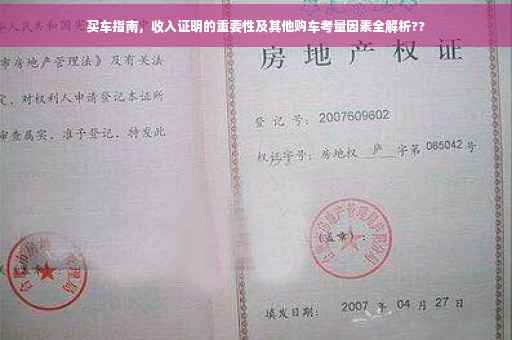 买车指南，收入证明的重要性及其他购车考量因素全解析??
人民共和国宪
市房地产管理法》及有关法
定，对权利人申请登记本证所
审查属实，准予登记，特发此
房地产权证
登记号：2007609602
权证字号：房地权 庐 字第 065042 号
（盖章）：
填发日期：2007 年 04 月 27 日